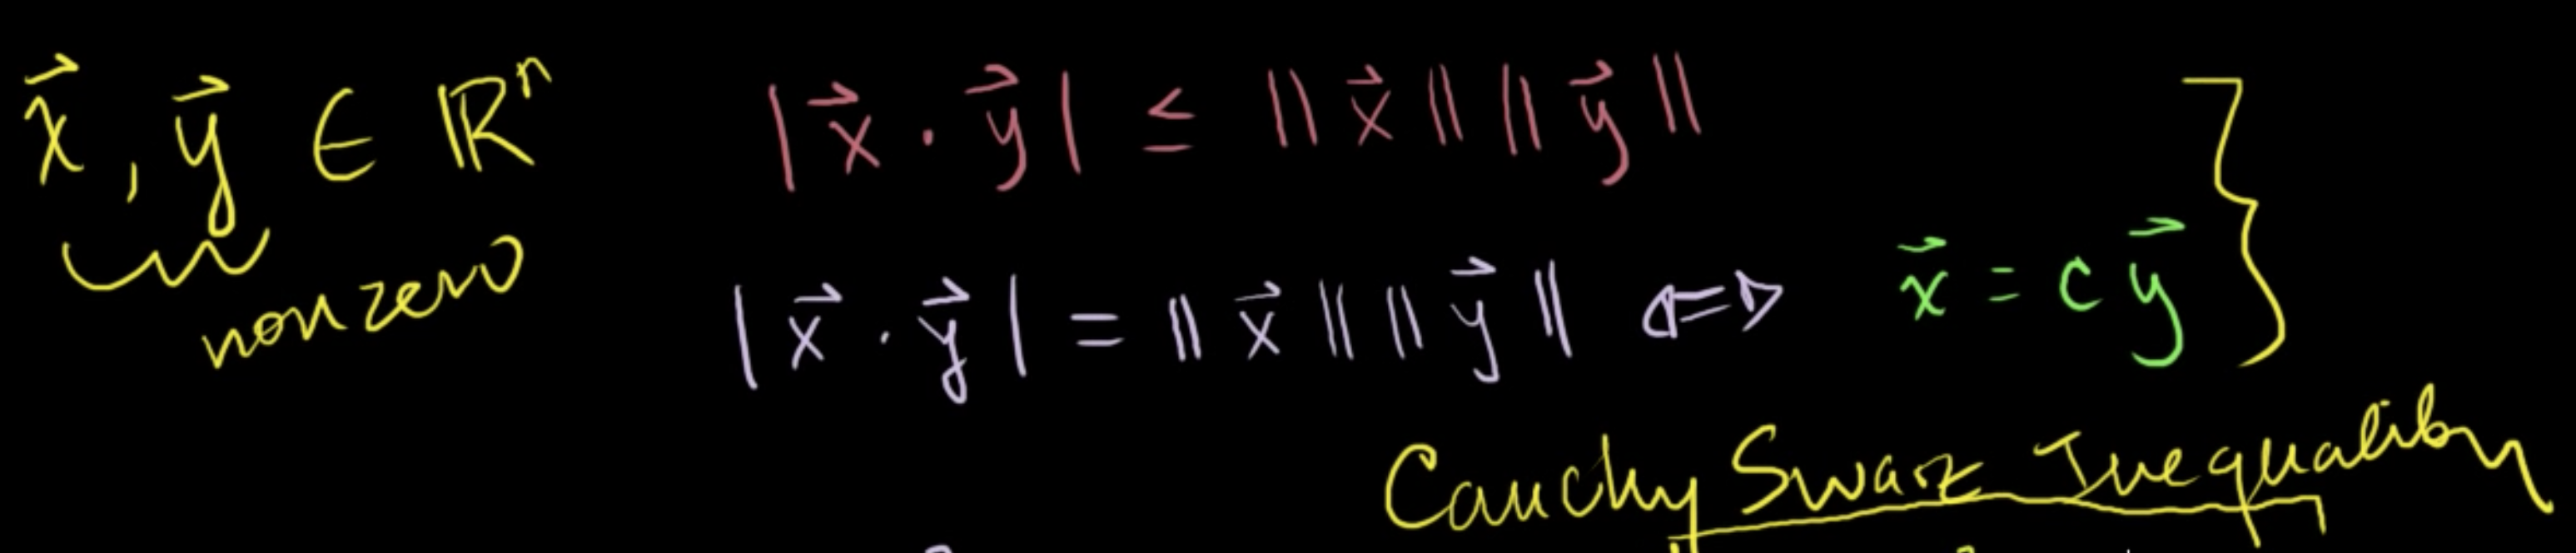 x⃗, y⃗ ∈ ℝⁿ |x⃗ · y⃗| ≤ ||x⃗|| ||y⃗||
nonzero |x⃗ · y⃗| = ||x⃗|| ||y⃗|| ⇔ x⃗ = c y⃗
Cauchy Swarz Inequality